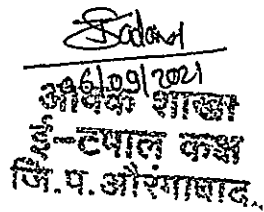 06/09/2021
आवक शाखा
ई-टपाल कक्ष
जि.प.औरंगाबाद.